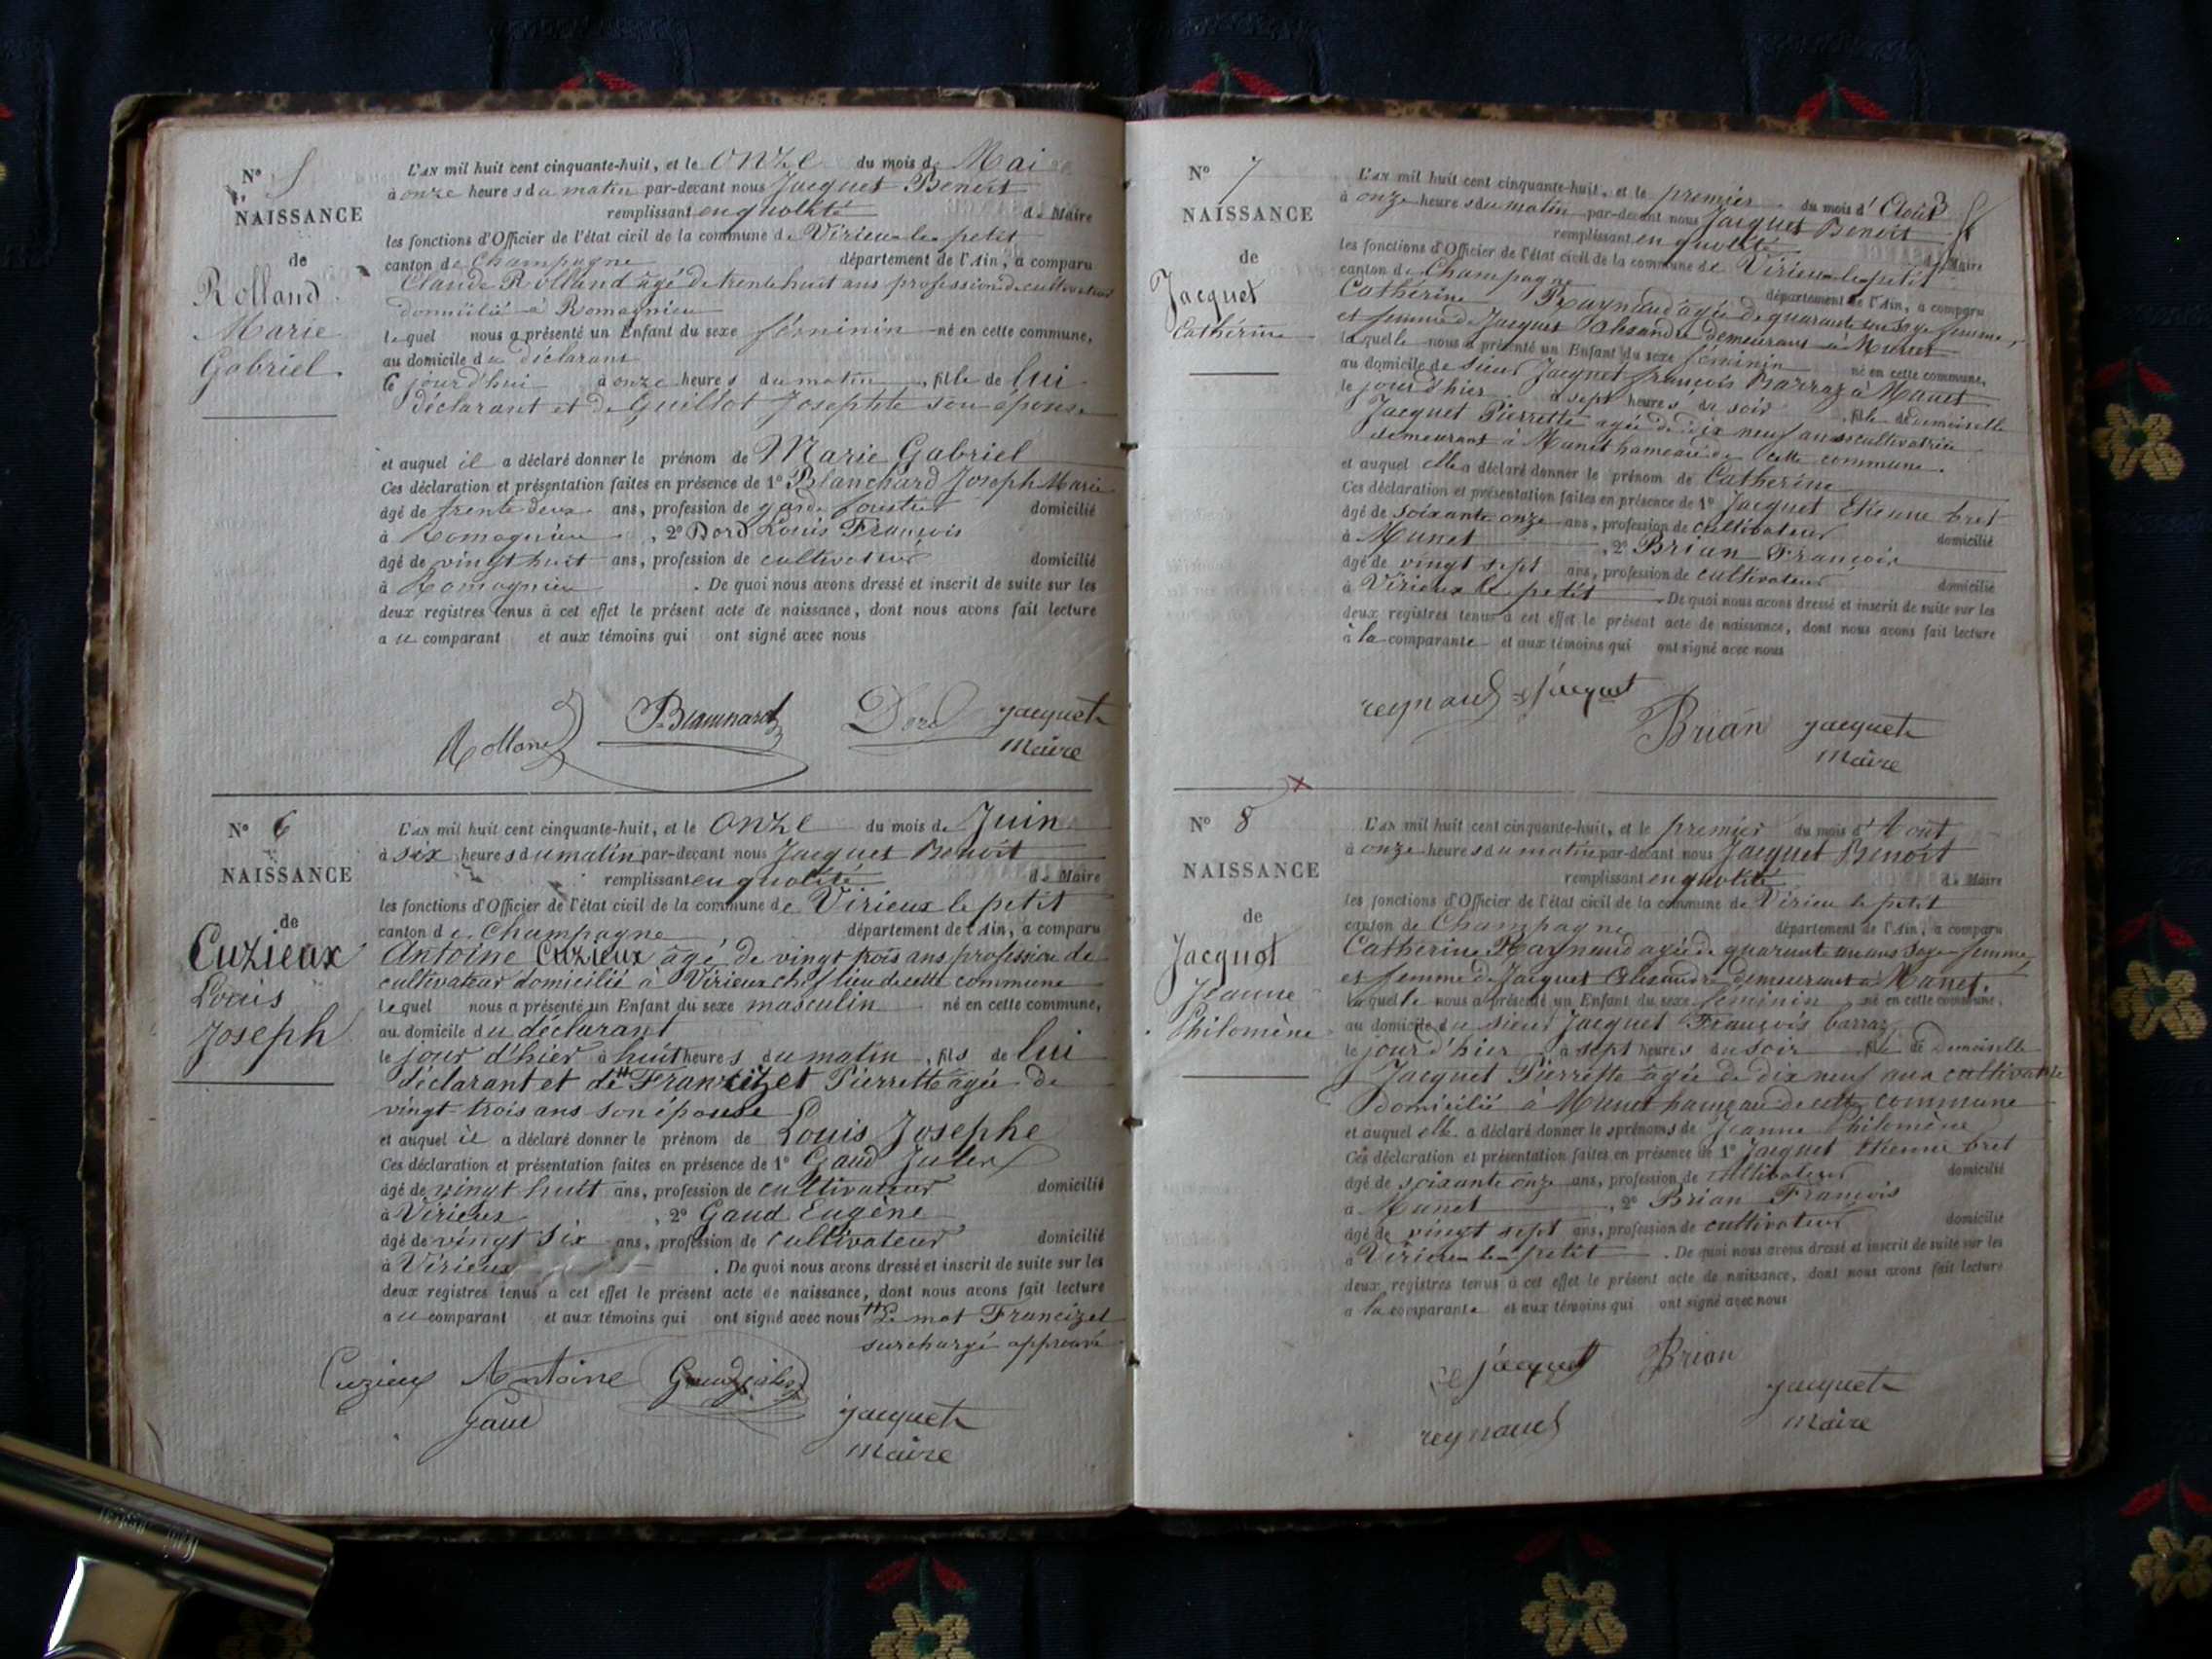 N° 5
NAISSANCE
de
Rolland
Marie
Gabriel.
L'AN mil huit cent cinquante-huit, et le onze du mois de Mai
à onze heures du matin par-devant nous Jacquet Benoit
remplissant en qualité de Maire
les fonctions d'Officier de l'état civil de la commune de Virieu le petit
canton de Champagne département de l'Ain, a comparu
Claude Rolland âgé de trente huit ans profession de cultivateur
domicilié à Romagnieu
lequel nous a présenté un Enfant du sexe féminin né en cette commune,
au domicile du déclarant
ce jourd'hui à onze heures du matin, fille de lui
déclarant et de Guillot Josephte son épouse
et auquel il a déclaré donner le prénom de Marie Gabriel
Ces déclaration et présentation faites en présence de 1° Blanchard Joseph Marie
âgé de trente deux ans, profession de garde forestier domicilié
à Romagnieu, 2° Dord Louis François
âgé de vingt huit ans, profession de cultivateur domicilié
à Romagnieu. De quoi nous avons dressé et inscrit de suite sur les
deux registres tenus à cet effet le présent acte de naissance, dont nous avons fait lecture
au comparant et aux témoins qui ont signé avec nous
Rolland Blanchard Dord jacquet
maire
N° 6
NAISSANCE
de
Cuzieux
Louis
Joseph
L'AN mil huit cent cinquante-huit, et le onze du mois de Juin
à six heures du matin par-devant nous Jacquet Benoit
remplissant en qualité de Maire
les fonctions d'Officier de l'état civil de la commune de Virieux le petit
canton de Champagne département de l'Ain, a comparu
Antoine Cuzieux âgé de vingt trois ans profession de
cultivateur domicilié à Virieux chef lieu de cette commune
lequel nous a présenté un Enfant du sexe masculin né en cette commune,
au domicile du déclarant
le jour d'hier à huit heures du matin, fils de lui
déclarant et de # Francizet Pierrette agée de
vingt-trois ans son épouse
et auquel il a déclaré donner le prénom de Louis Josephe
Ces déclaration et présentation faites en présence de 1° Gaud Jules
âgé de vingt huit ans, profession de cultivateur domicilié
à Virieux, 2° Gaud Eugène
âgé de vingt six ans, profession de cultivateur domicilié
à Virieux. De quoi nous avons dressé et inscrit de suite sur les
deux registres tenus à cet effet le présent acte de naissance, dont nous avons fait lecture
au comparant et aux témoins qui ont signé avec nous # Le mot Francizet
surchargé approuvé
Cuzieux Antoine Gaud jules
Gaud jacquet
maire
N° 7
NAISSANCE
de
Jacquet
Catherine
L'AN mil huit cent cinquante-huit, et le premier du mois d'Août
à onze heures du matin par-devant nous Jacquet Benoit
remplissant en qualité de Maire
les fonctions d'Officier de l'état civil de la commune de Virieu le petit
canton de Champagne département de l'Ain, a comparu
Catherine Raynaud agée de quarante un ans sage femme,
et femme de Jacquet Alexandre demeurant à Munet
laquelle nous a présenté un Enfant du sexe féminin né en cette commune,
au domicile de sieur Jacquet françois Barraz à Munet
le jour d'hier à sept heures du soir, fille de demoiselle
Jacquet Pierrette agée de dix neuf ans cultivatrice
demeurant à Munet hameau de cette commune.
et auquel elle a déclaré donner le prénom de Catherine
Ces déclaration et présentation faites en présence de 1° Jacquet Etienne bret
âgé de soixante onze ans, profession de cultivateur domicilié
à Munet, 2° Brian François
âgé de vingt sept ans, profession de cultivateur domicilié
à Virieux le petit. De quoi nous avons dressé et inscrit de suite sur les
deux registres tenus à cet effet le présent acte de naissance, dont nous avons fait lecture
à la comparante et aux témoins qui ont signé avec nous
reynaud jacquet
Brian jacquet
maire
N° 8
NAISSANCE
de
Jacquet
Jeanne
Philomène
L'AN mil huit cent cinquante-huit, et le premier du mois d'Aout
à onze heures du matin par-devant nous Jacquet Benoit
remplissant en qualité de Maire
les fonctions d'Officier de l'état civil de la commune de Virieu le petit
canton de Champagne département de l'Ain, a comparu
Catherine Raynaud agée de quarante un ans sage femme,
et femme de Jacquet Alexandre demeurant à Munet.
laquelle nous a présenté un Enfant du sexe féminin né en cette commune,
au domicile du sieur Jacquet François barraz
le jour d'hier à sept heures du soir fille de demoiselle
Jacquet Pierrette agée de dix neuf ans cultivatrice
domicilié à Munet hameau de cette commune
et auquel elle a déclaré donner les prénoms de Jeanne Philomène
Ces déclaration et présentation faites en présence de 1° Jacquet Etienne bret
âgé de soixante onze ans, profession de cultivateur domicilié
à Munet, 2° Brian François
âgé de vingt sept ans, profession de cultivateur domicilié
à Virieu le petit. De quoi nous avons dressé et inscrit de suite sur les
deux registres tenus à cet effet le présent acte de naissance, dont nous avons fait lecture
à la comparante et aux témoins qui ont signé avec nous
jacquet Brian
jacquet
reynaud maire